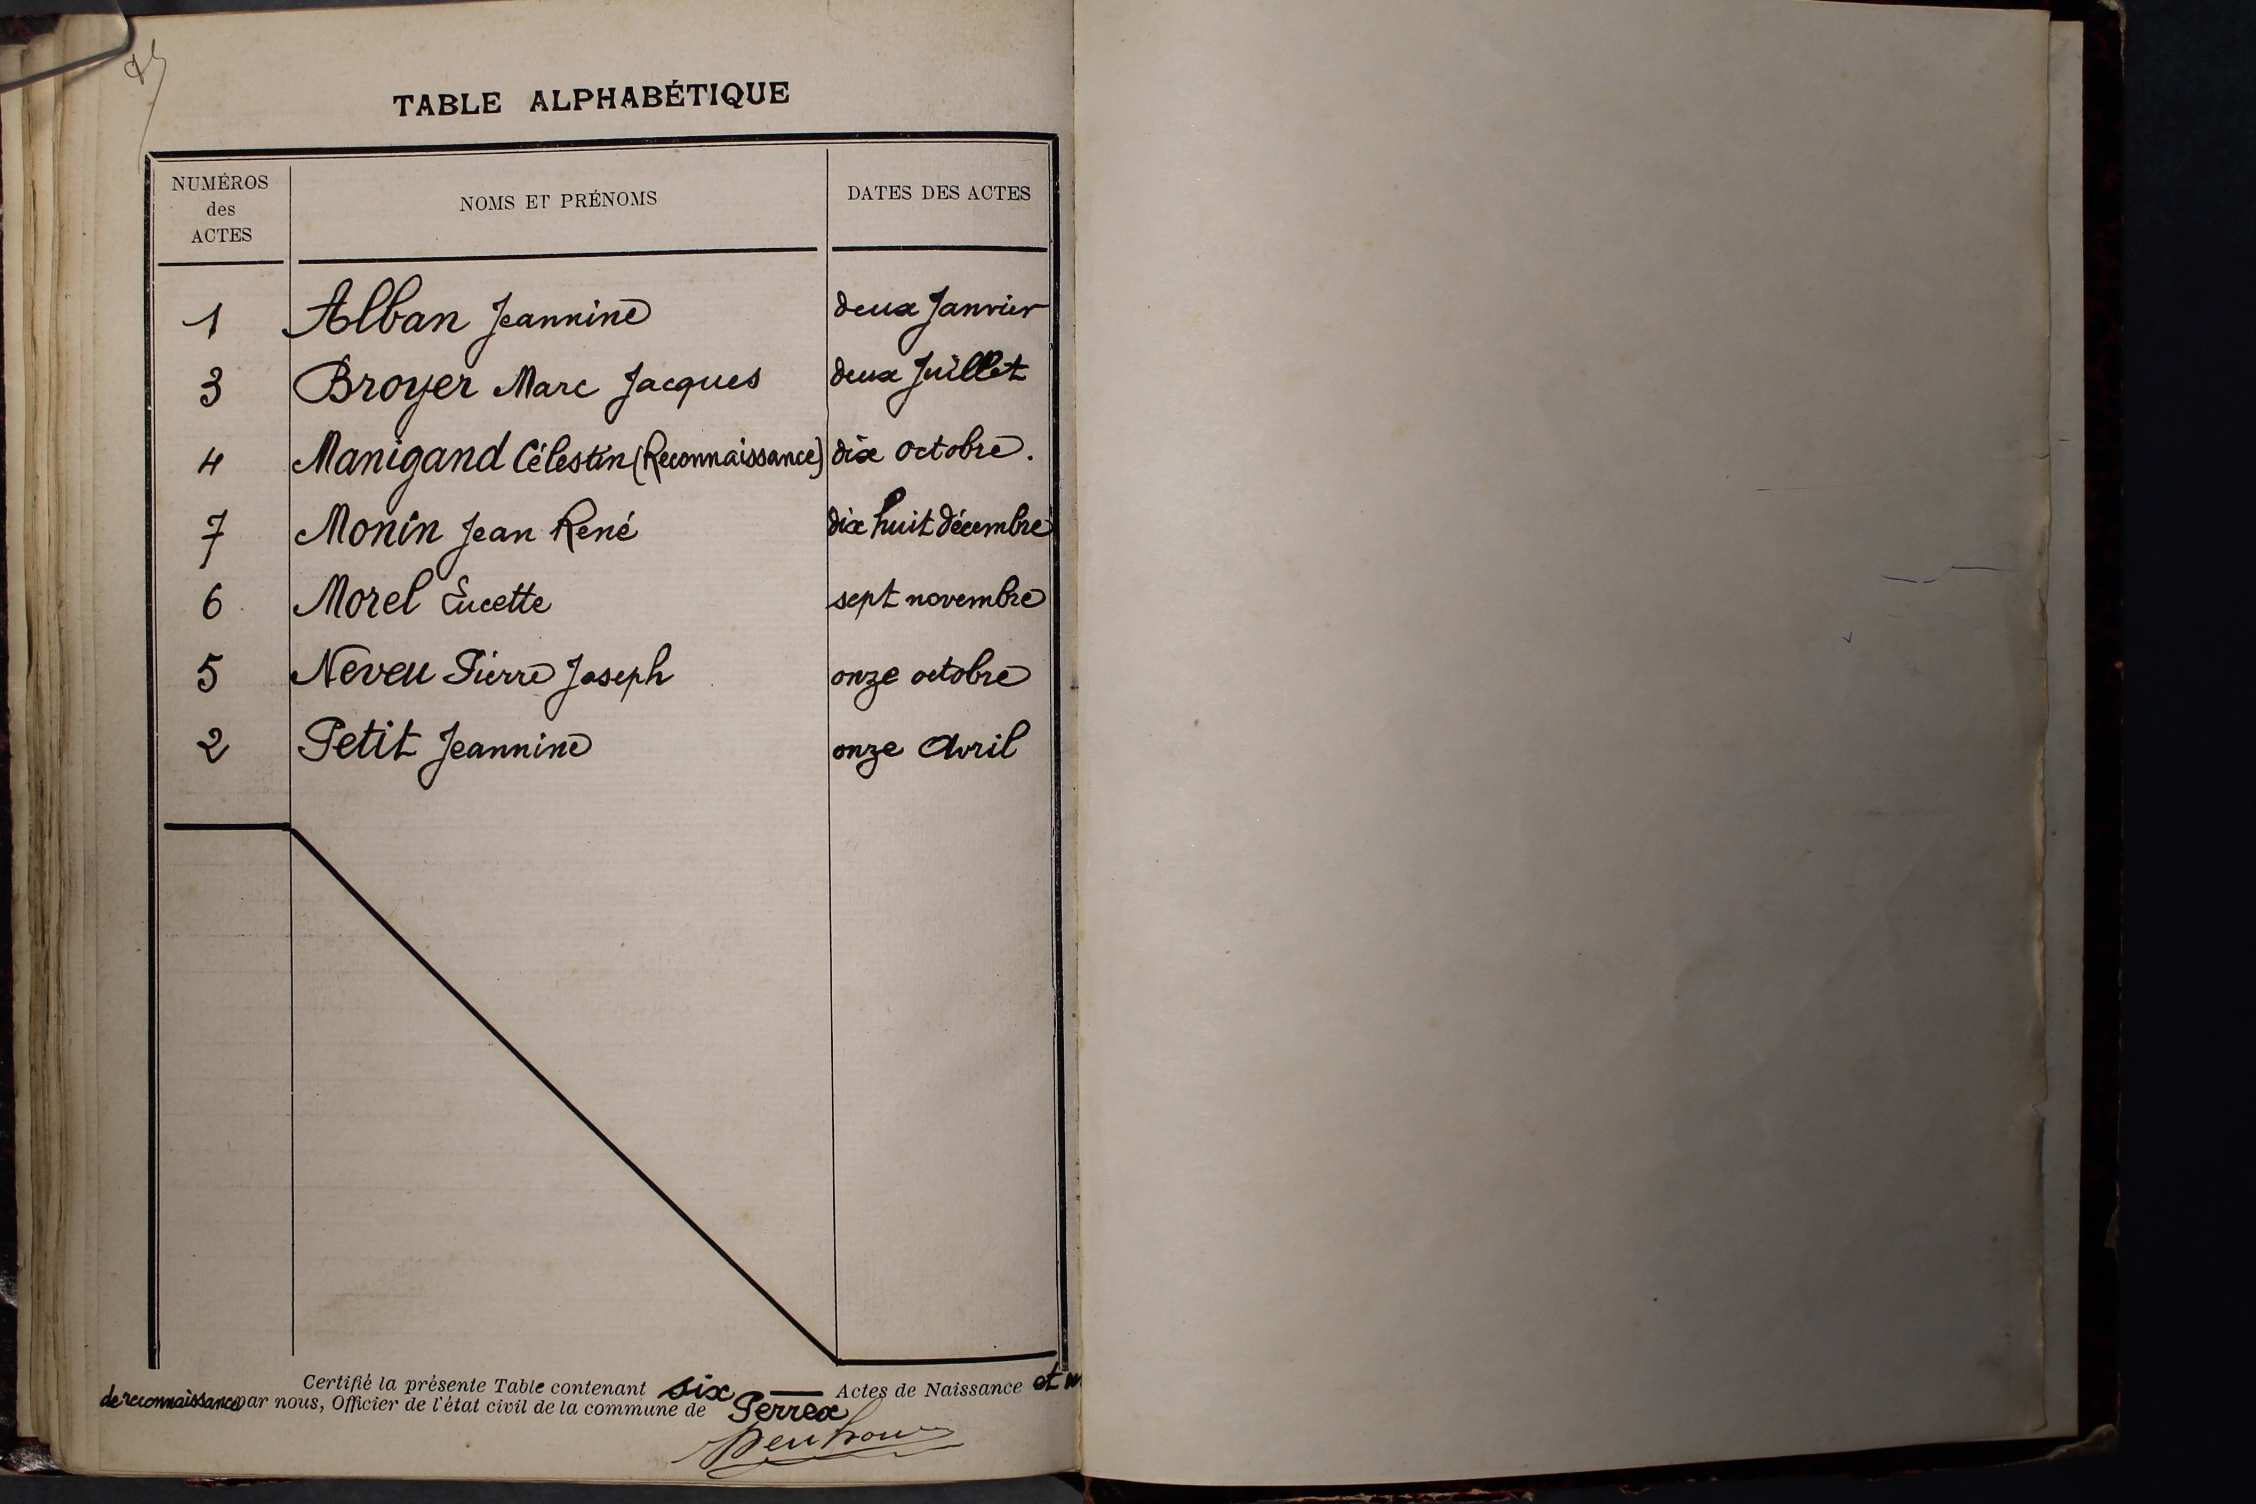 TABLE ALPHABÉTIQUE
NUMÉROS
des
ACTES
NOMS ET PRÉNOMS
DATES DES ACTES
1 Alban Jeannine deux Janvier
3 Broyer Marc Jacques deux Juillet
4 Manigand Célestin (Reconnaissance) dix octobre.
7 Monin Jean René dix huit décembre
6 Morel Lucette sept novembre
5 Neveu Pierre Joseph onze octobre
2 Petit Jeannine onze Avril
Certifié la présente Table contenant six Actes de Naissance et
de reconnaissance par nous, Officier de l'état civil de la commune de Perrex